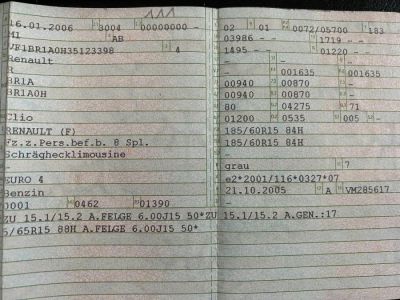 16.01.2006 3004 00000000 -
M1 AB
VF1BR1A0H35123398 4
Renault
R
BR1A
BR1A0H
Clio
RENAULT (F)
Fz.z.Pers.bef.b. 8 Spl.
Schräghecklimousine
-
EURO 4
Benzin
0001 0462 01390
ZU 15.1/15.2 A.FELGE 6.00J15 50*ZU 15.1/15.2 A.GEN.:17
5/65R15 88H A.FELGE 6.00J15 50*
02 01 0072/05700 183
03986 - - 1719 - -
1495 - - 01220 - -
- -
- 001635 001635
00940 00870 -
00940 00870 -
80 04275 71
01200 0535 005 -
185/60R15 84H
185/60R15 84H
-
-
grau 7
e2*2001/116*0327*07
21.10.2005 A VM285617
- -